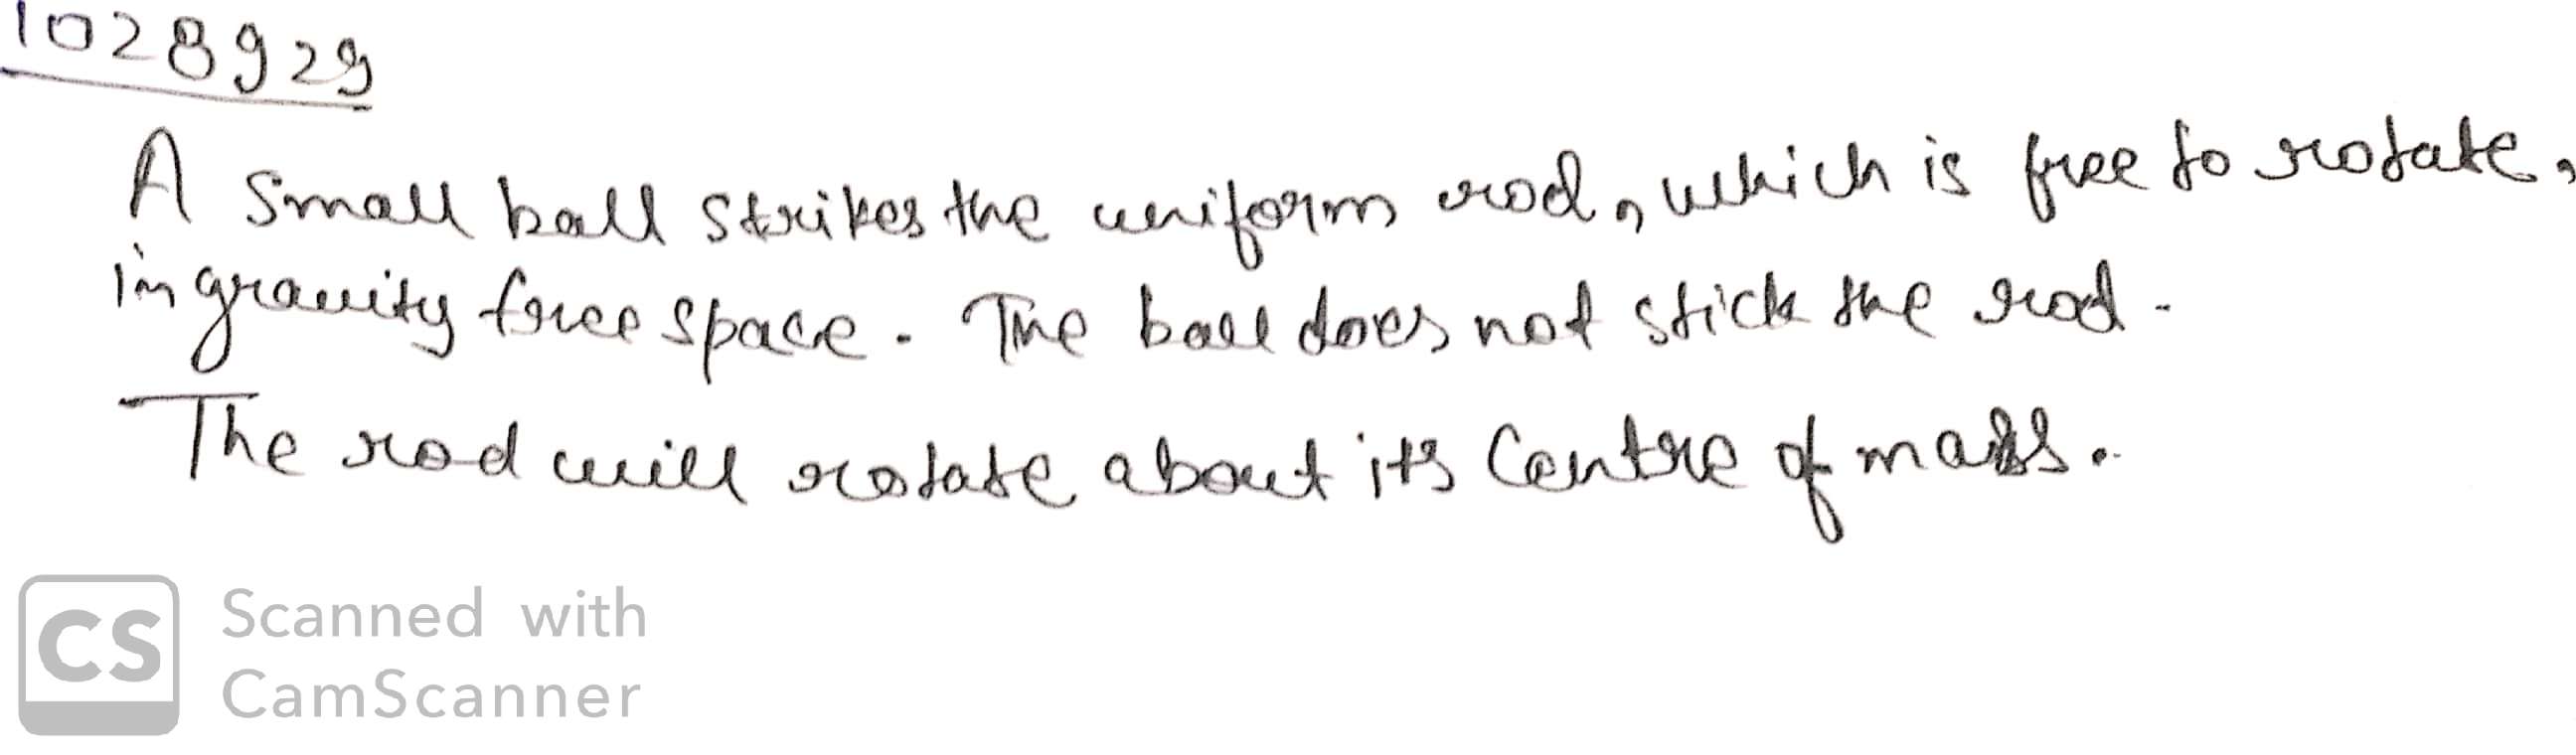 1028929
A Small ball strikes the uniform rod, which is free to rotate,
in gravity free space. The ball does not stick the rod.
The rod will rotate about its Centre of mass.
CS Scanned with
CamScanner